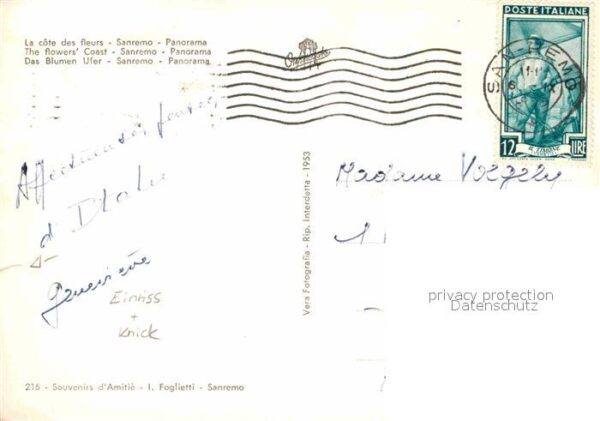 La côte des fleurs - Sanremo - Panorama
The flowers' Coast - Sanremo - Panorama
Das Blumen Ufer - Sanremo - Panorama
POSTE ITALIANE
SAN REMO
12 LIRE
Affectueuses pensées
d'Italie
Geneviève
Einriss
+
Knick
Madame
1
Vera Fotografia - Rip. Interdetta - 1953
privacy protection
Datenschutz
216 - Souvenirs d'Amitiè - I. Foglietti - Sanremo